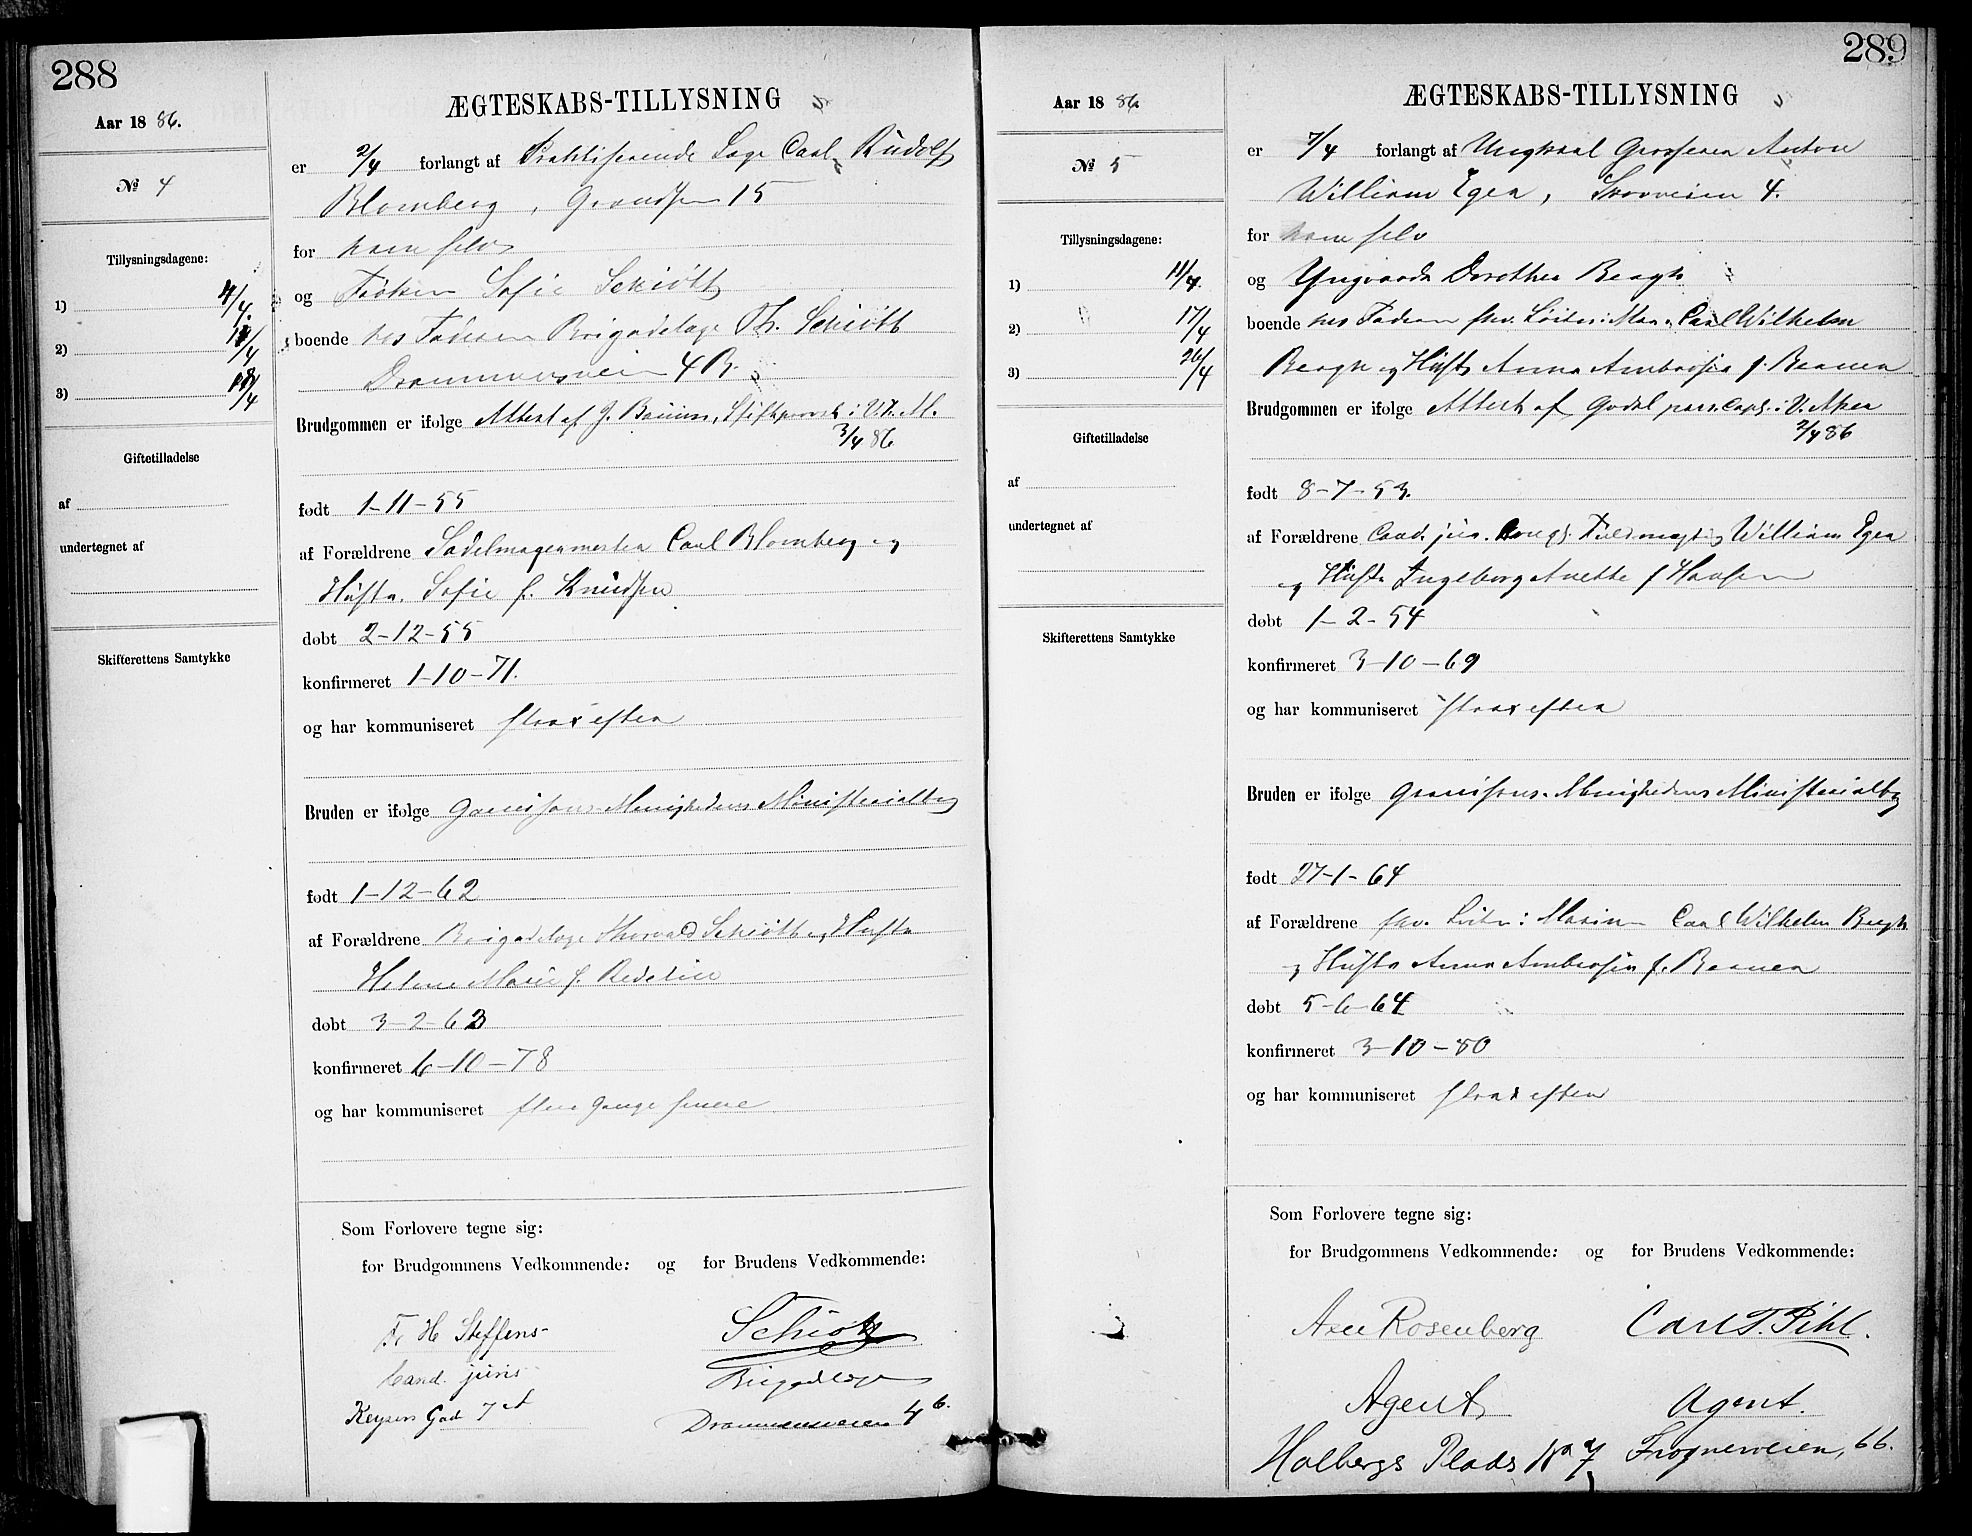 288
Aar 1886.
№ 4
Tillysningsdagene:
1) 4/4.
2) 11/4
3) 18/4
Giftetilladelse
af
undertegnet af
Skifterettens Samtykke
ÆGTESKABS-TILLYSNING
er 2/4 forlangt af Praktiserende Læge Carl Rudolf
Blomberg, Grændsen 15
for ham selv
og Frøken Sofie Schiøtz
boende hos Faderen Brigadelæge Th. Schiøtz
Drammensveien 4 B.
Brudgommen er ifølge Attest af J. Bruun, Stiftsprovst i V.F.M.
3/4 86.
født 1-11-55
af Forældrene Sadelmagermester Carl Blomberg og
Hustr. Sofie f. Knudsen
døbt 2-12-55
konfirmeret 1-10-71.
og har kommuniseret strax efter
Bruden er ifølge Garnisons-Menighedens Ministerialbog
født 1-12-62
af Forældrene Brigadelæge Thorvald Schiøtz og Hustr
Helene Marie f.
døbt 3-2-63
konfirmeret 6-10-78
og har kommuniseret flere Gange senere
Som Forlovere tegne sig:
for Brudgommens Vedkommende: og for Brudens Vedkommende:
Fr H Steffens
Schiøtz
Cand. juris
Brigadelæge
Keysers Gad 7 A
Drammensveien 4 b.
289
Aar 1886.
№ 5
Tillysningsdagene:
1) 11/4.
2) 17/4
3) 26/4
Giftetilladelse
af
undertegnet af
Skifterettens Samtykke
ÆGTESKABS-TILLYSNING
er 7/4 forlangt af Ungkarl Grosserer Anton
William Eger, Skovveien 4.
for ham selv
og Yngvarda Dorothea Bergh
boende hos Faderen fhv. Løitn: i Mar. Carl Wilhelm
Bergh og Hust Anna Ambrosia f. Beamer
Brudgommen er ifølge Attest af Godal pers. Capl. i V. Aker
2/4 86
født 8-7-53.
af Forældrene Cand. jur. Kongl. Fuldmægtig William Eger
og Hustr Ingeborg Anette f Hansen
døbt 1-2-54
konfirmeret 3-10-69
og har kommuniseret strax efter
Bruden er ifølge Garnisons-Menighedens Ministerialbog
født 27-1-64
af Forældrene fhv. Løitn: i Marinen Carl Wilhelm Bergh
og Hustr Anna Ambrosia f. Beamer
døbt 5-6-64
konfirmeret 3-10-80
og har kommuniseret strax efter
Som Forlovere tegne sig:
for Brudgommens Vedkommende: og for Brudens Vedkommende:
Axel Rosenberg
Carl T. Pihl.
Agent
Agent.
Holbergs Plads No 7
Frognerveien, 66.